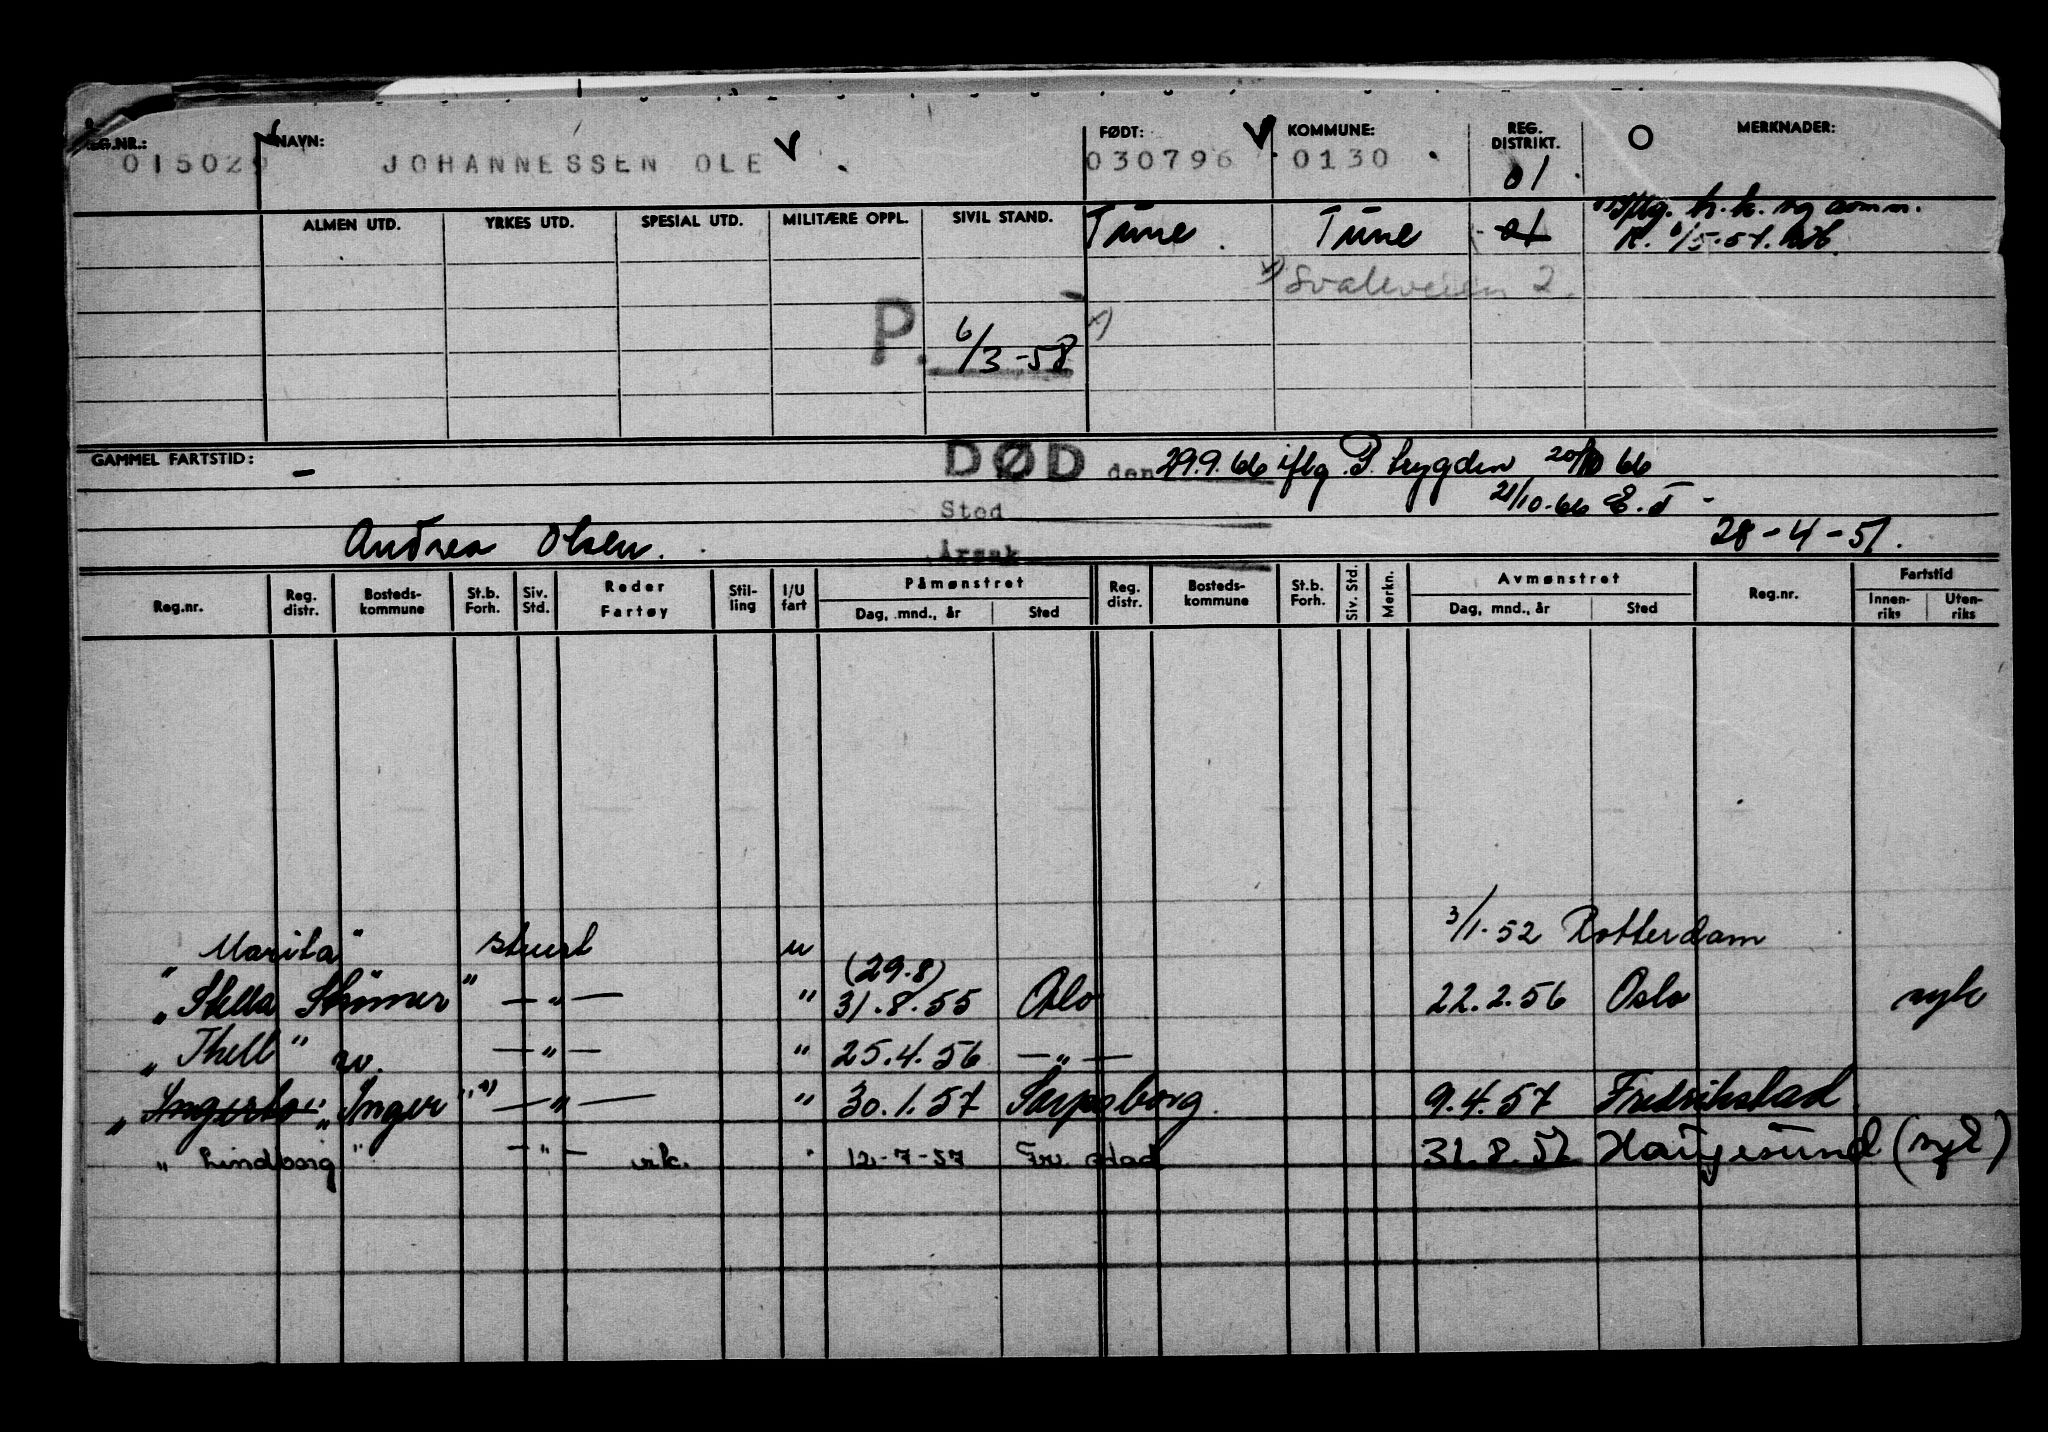 REG.NR.: NAVN: FØDT: KOMMUNE: REG. DISTRIKT. MERKNADER:
015029 JOHANNESSEN OLE 030796 0130 01
ALMEN UTD. YRKES UTD. SPESIAL UTD. MILITÆRE OPPL. SIVIL STAND. Tune Tune 01
Svaleveien 2
P. 6/3-58
GAMMEL FARTSTID: - DØD den 29.9.66 iflg. P. trygden 20/10 66
Sted 21/10-66 E.T
Andrea Olsen. Årsak 28-4-51.
Reg.nr. Reg. distr. Bosteds-kommune St.b. Forh. Siv. Std. Reder Fartøy Stil-ling I/U fart Påmønstret Dag, mnd., år Sted Reg. distr. Bosteds-kommune St.b. Forh. Siv. Std. Merkn. Avmønstret Dag, mnd., år Sted Reg.nr. Fartstid Innen-riks Uten-riks
"Marita" stuert u 3/1-52 Rotterdam
(29.8)
"Stella " —"— " 31.8.55 Oslo 22.2.56 Oslo syk
"Thell" —"— " 25.4.56 —"—
"Ingerto" "Inger" —"— " 30.1.57 Sarpsborg. 9.4.57 Fredrikstad
"Lindborg" —"— vik. " 12-7-57 Fr. stad 31.8.57 Haugesund (syk)